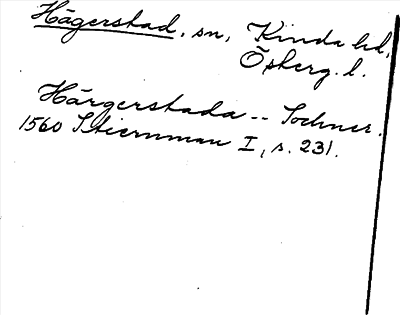 Hägerstad, sn, Kinda hd,
Ösberg. l.
Härgerstada -- Sochner.
1560 Stiernman I, s. 231.